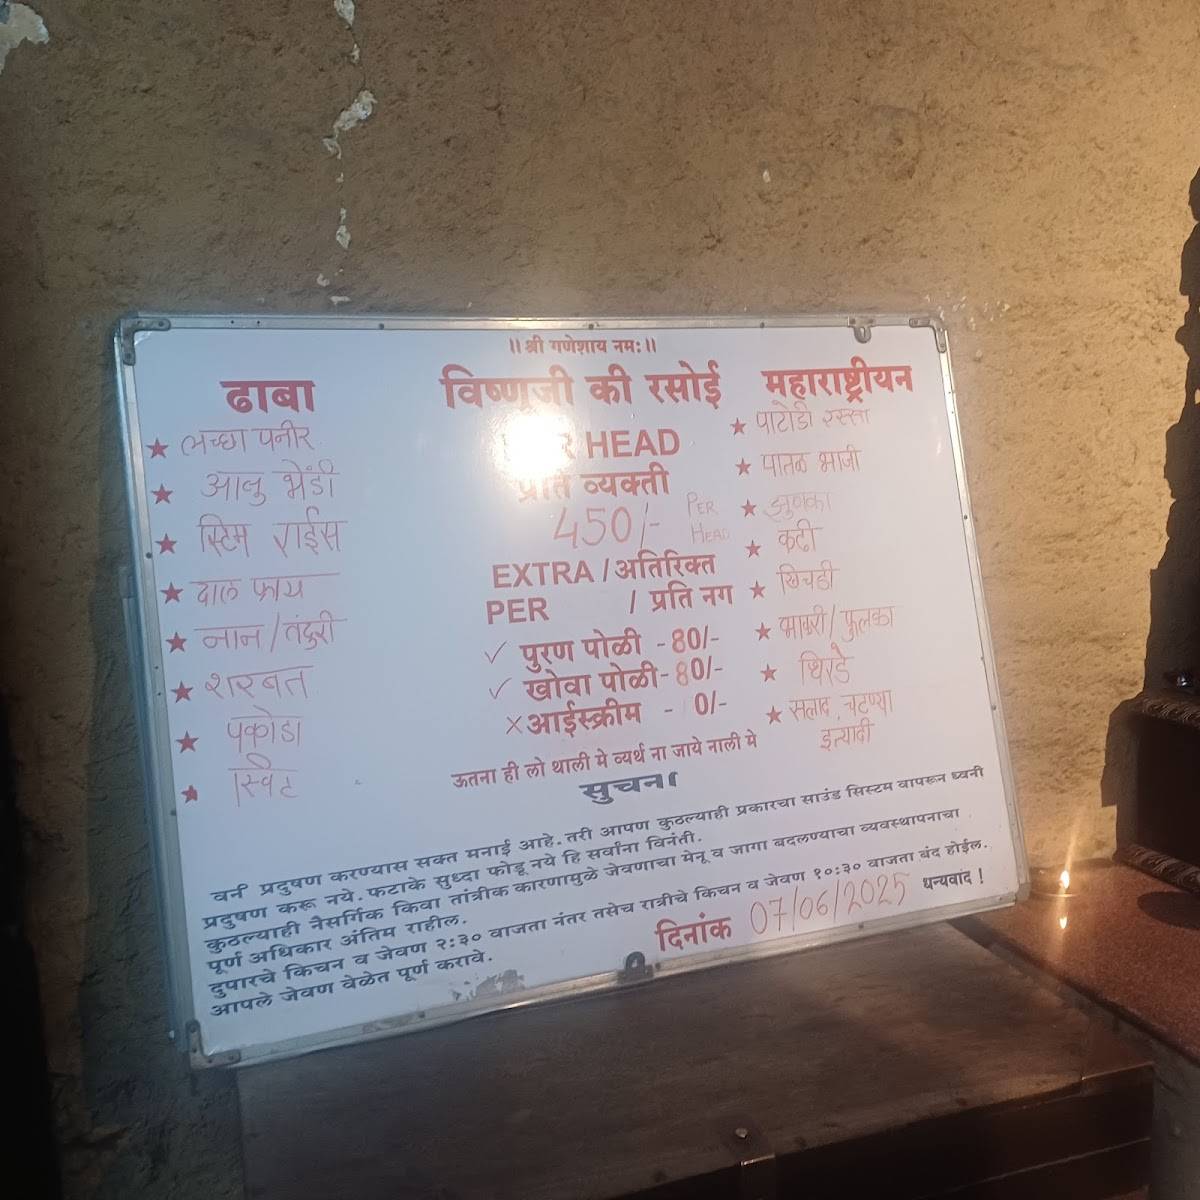 ॥ श्री गणेशाय नमः॥
ढाबा
लच्छा पनीर
आलु भेंडी
स्टिम राईस
दाल फ्राय
नान / तंदुरी
शरबत
पकोडा
स्विट
विष्णूजी की रसोई
HEAD
प्रति व्यक्ती
450/- PER HEAD
EXTRA / अतिरिक्त
PER / प्रति नग
✓ पुरण पोळी - 80/-
✓ खोवा पोळी - 80/-
× आईस्क्रीम - 0/-
ऊतना ही लो थाली मे व्यर्थ ना जाये नाली मे
महाराष्ट्रीयन
पाटोडी रस्सा
पातळ भाजी
झुणका
कढी
खिचडी
भाकरी / फुलका
धिरडे
सलाद, चटण्या
इत्यादी
सुचना
प्रदुषण करण्यास सक्त मनाई आहे. तरी आपण कुठल्याही प्रकारचा साउंड सिस्टम वापरून ध्वनी
प्रदुषण करू नये. फटाके सुध्दा फोडू नये हि सर्वांना विनंती.
कुठल्याही नैसर्गिक किवा तांत्रीक कारणामुळे जेवणाचा मेनू व जागा बदलण्याचा व्यवस्थापनाचा
पूर्ण अधिकार अंतिम राहील.
दुपारचे किचन व जेवण २:३० वाजता नंतर तसेच रात्रीचे किचन व जेवण १०:३० वाजता बंद होईल.
आपले जेवण वेळेत पूर्ण करावे.
धन्यवाद !
दिनांक 07/06/2025